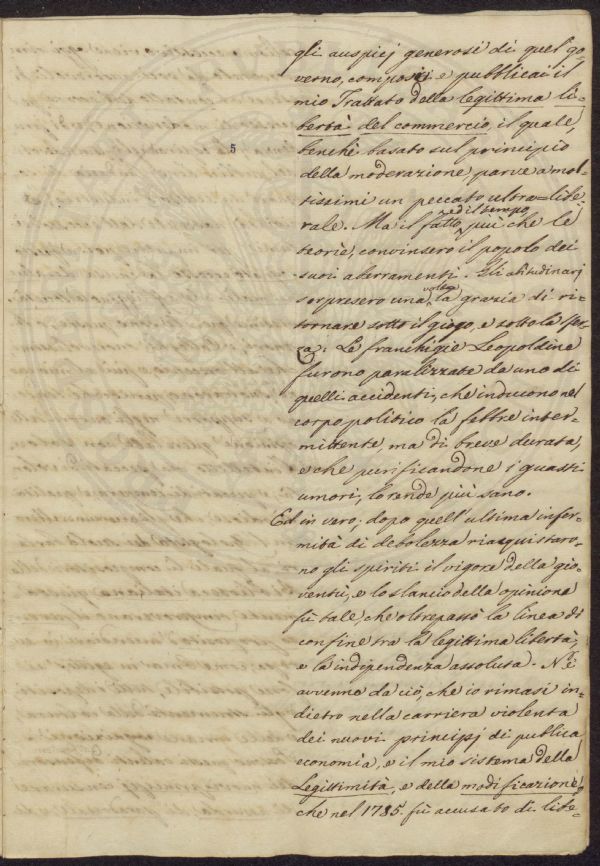 5
gli auspicj generosi di quel go=
verno, composi, e pubblicai il
mio Trattato della legittima li=
bertà del commercio, il quale,
benchè basato sul principio
della moderazione, parve a mol=
tissimi un peccato ultra=libe=
rale. Ma il fatto, ed il tempo, più che le
teorie, convinsero il popolo dei
suoi aberramenti. Gli abitudinarj
sorpresero una volta la grazia di ri=
tornare sotto il giogo, e sotto la sfer=
za. Le franchigie Leopoldine
furono paralizzate da uno di
quelli accidenti, che inducono nel
corpo politico la febbre inter=
mittente, ma di breve durata,
e che purificandone i guasti
umori, lo rende più sano.
Ed in vero, dopo quell'ultima infer=
mità di debolezza riacquistaro=
no gli spiriti il vigore della gio=
ventù, e lo slancio della opinione
fù tale, che oltrepassò la linea di
confine tra la legittima libertà,
e la indipendenza assoluta. N'è
avvenuto da ciò, che io rimasi in=
dietro nella carriera violenta
dei nuovi principj di pubblica
economia, e il mio sistema della
Legittimità, e della modificazione,
che nel 1785. fù accusato di libe=